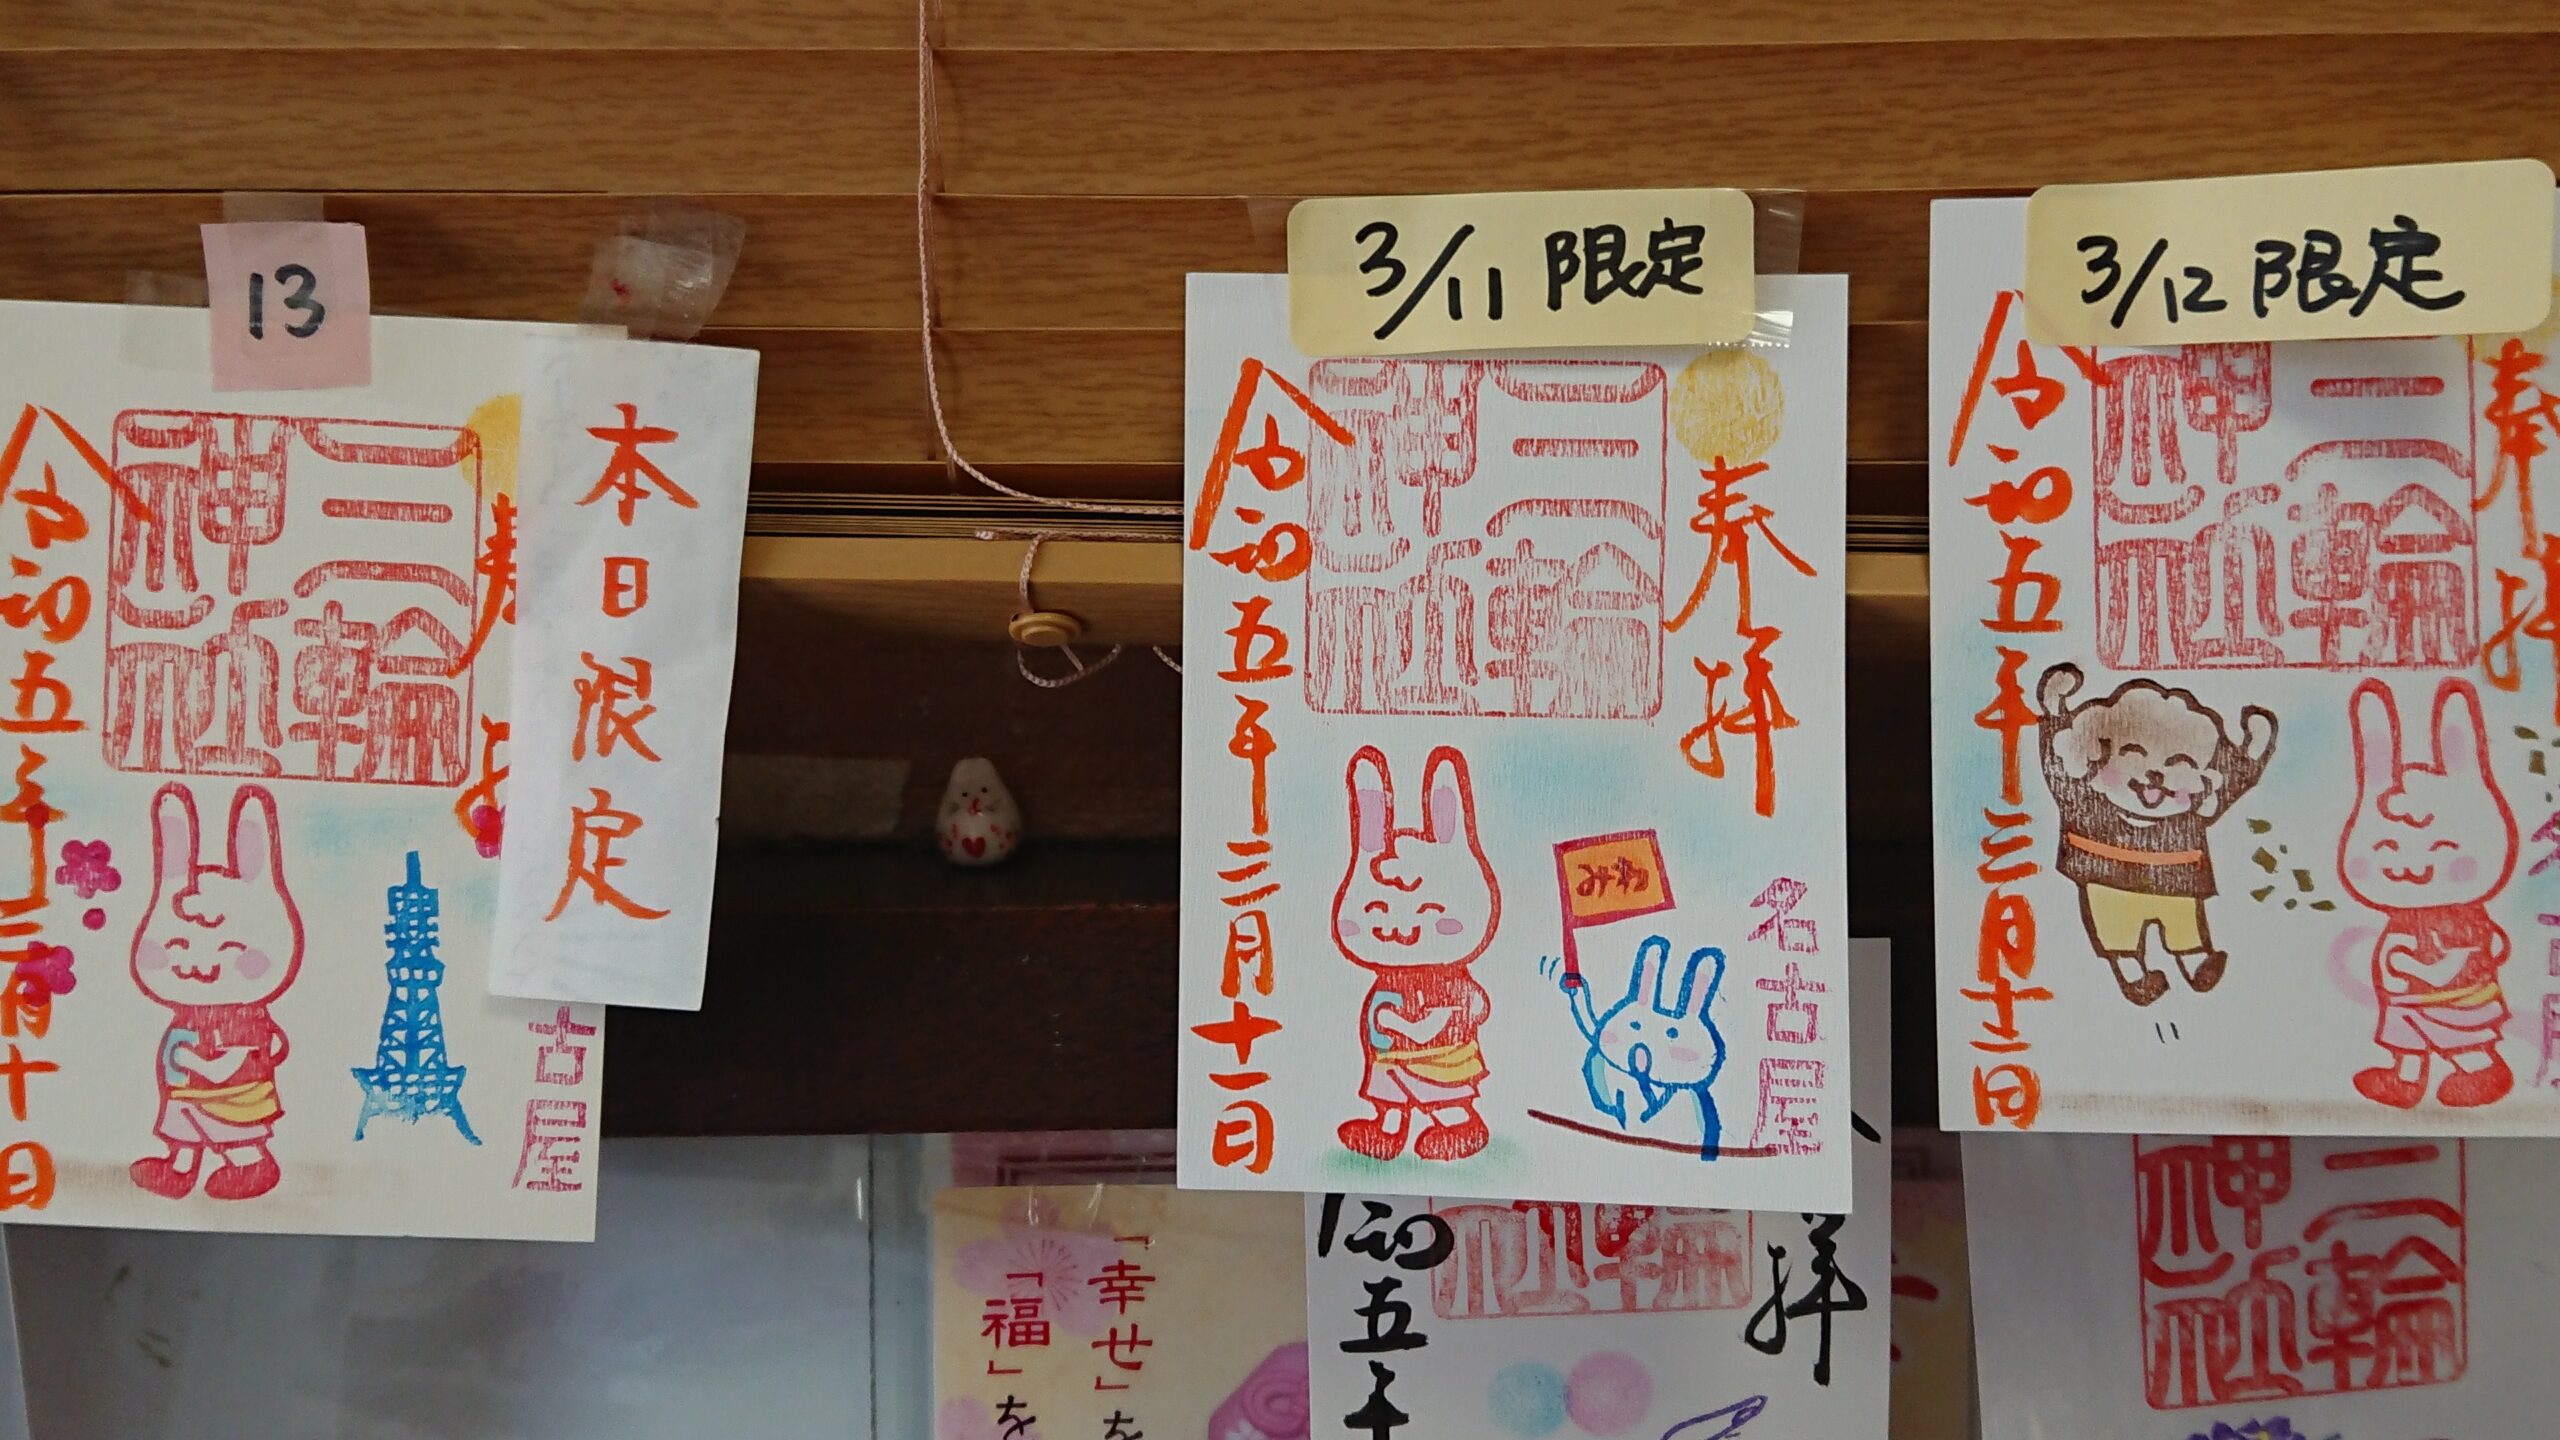 13
本日限定
奉拝
三輪
神社
令和五年三月十日
古屋
3/11 限定
奉拝
三輪
神社
令和五年三月十一日
みわ
名古屋
3/12 限定
奉拝
三輪
神社
令和五年三月十二日
名古屋
「幸せ」を
「福」を
拝
輪
社
令和五年
三輪
神社